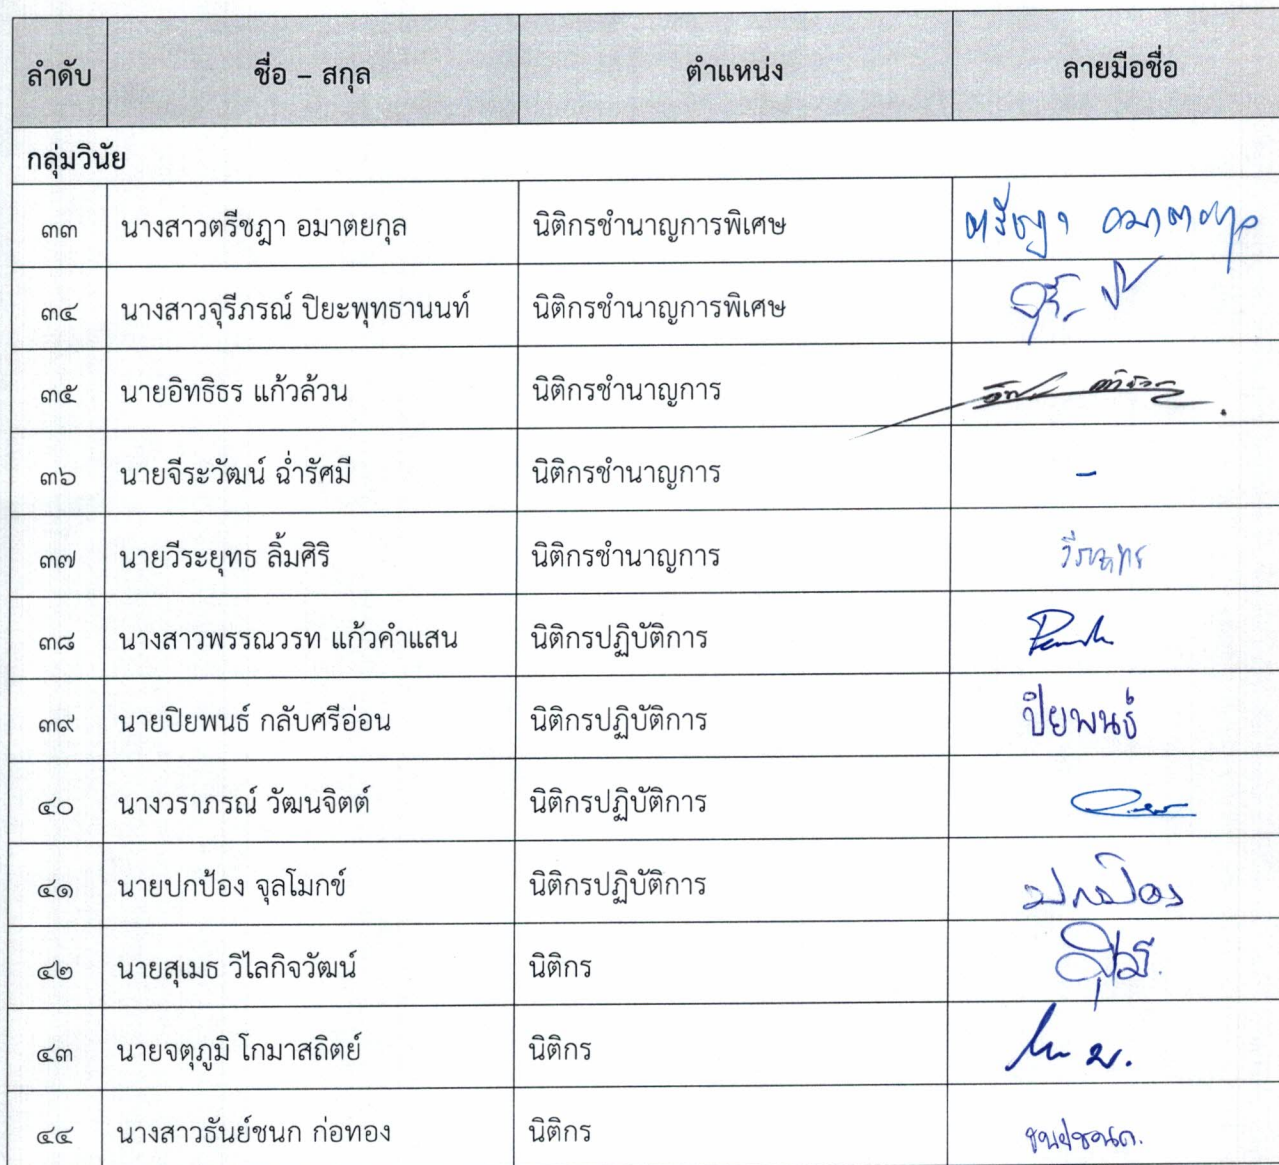 ลำดับ ชื่อ – สกุล ตำแหน่ง ลายมือชื่อ
กลุ่มวินัย
๓๓ นางสาวตรีชฎา อมาตยกุล นิติกรชำนาญการพิเศษ ตรีชฎา อมาตยกุล
๓๔ นางสาวจุรีภรณ์ ปิยะพุทธานนท์ นิติกรชำนาญการพิเศษ
๓๕ นายอิทธิธร แก้วล้วน นิติกรชำนาญการ
๓๖ นายจีระวัฒน์ ฉ่ำรัศมี นิติกรชำนาญการ -
๓๗ นายวีระยุทธ ลิ้มศิริ นิติกรชำนาญการ วีระยุทธ
๓๘ นางสาวพรรณวรท แก้วคำแสน นิติกรปฏิบัติการ
๓๙ นายปิยพนธ์ กลับศรีอ่อน นิติกรปฏิบัติการ ปิยพนธ์
๔๐ นางวราภรณ์ วัฒนจิตต์ นิติกรปฏิบัติการ
๔๑ นายปกป้อง จุลโมกข์ นิติกรปฏิบัติการ ปกป้อง
๔๒ นายสุเมธ วิไลกิจวัฒน์ นิติกร
๔๓ นายจตุภูมิ โกมาสถิตย์ นิติกร
๔๔ นางสาวธันย์ชนก ก่อทอง นิติกร ธันย์ชนก